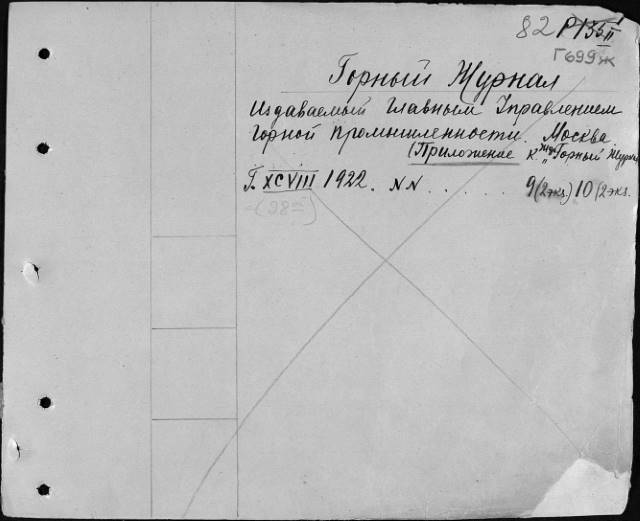 82 Р135/II
Г699ж
Горный Журнал
Издаваемый Главным Управлением
Горной Промышленности. Москва.
(Приложение к жур. "Горный Журнал
Г. XCVIII 1922. NN . . . . . 9(2экз.) 10(2экз.